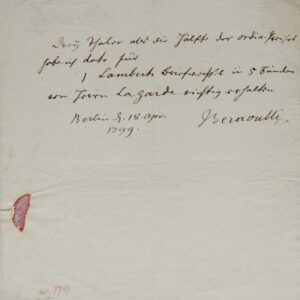 Drey Thaler als die Hälfte des ordin. Preises
habe ich dato für
1 Lamberts Briefwechsel in 5 Bänden
von Herrn Lagarde richtig erhalten
Berlin d. 18 Apr.
1799.
JBernoulli